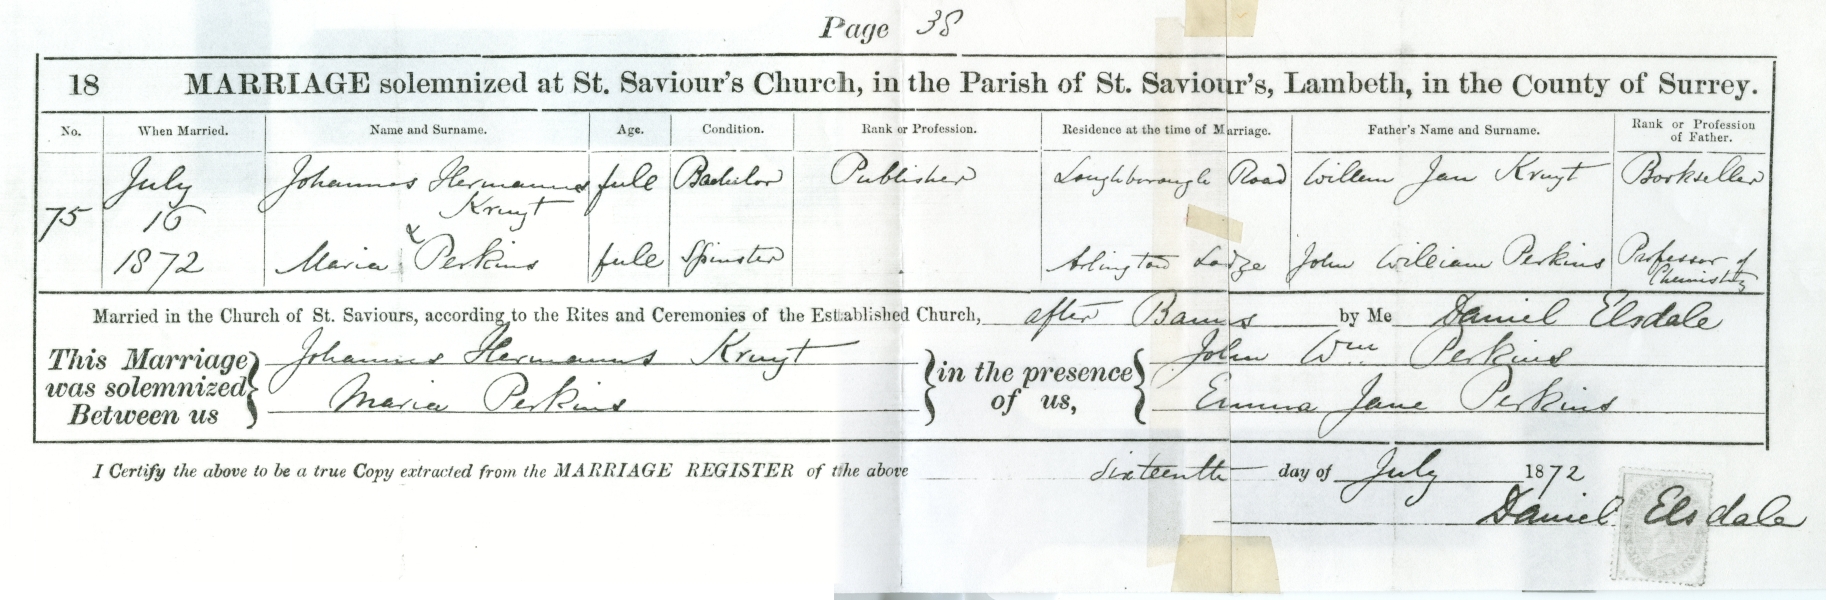 Page 38
18 MARRIAGE solemnized at St. Saviour's Church, in the Parish of St. Saviour's, Lambeth, in the County of Surrey.
No. When Married. Name and Surname. Age. Condition. Rank or Profession. Residence at the time of Marriage. Father's Name and Surname. Rank or Profession of Father.
75 July 16 1872
Johannes Hermanus Kruyt full Bachelor Publisher Loughborough Road Willem Jan Kruyt Bookseller
& Maria Perkins full Spinster Arlington Lodge John William Perkins Professor of Chemistry
Married in the Church of St. Saviours, according to the Rites and Ceremonies of the Established Church, after Banns by Me Daniel Elsdale
This Marriage was solemnized Between us
Johannes Hermanus Kruyt
Maria Perkins
in the presence of us,
John Wm Perkins
Emma Jane Perkins
I Certify the above to be a true Copy extracted from the MARRIAGE REGISTER of the above
sixteenth day of July 1872
Daniel Elsdale